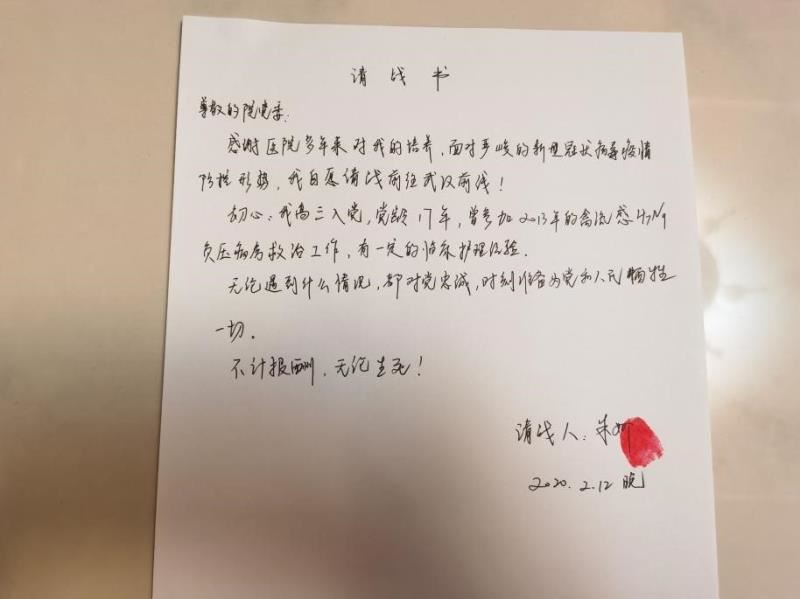 请战书
尊敬的院党委：
感谢医院多年来对我的培养，面对严峻的新型冠状病毒疫情
防控形势，我自愿请战前往武汉前线！
初心：我高三入党，党龄17年，曾参加2013年的禽流感H7N9
负压病房救治工作，有一定的临床护理经验．
无论遇到什么情况，都对党忠诚，时刻准备为党和人民牺牲
一切．
不计报酬，无论生死！
请战人：朱
2020.2.12 晚